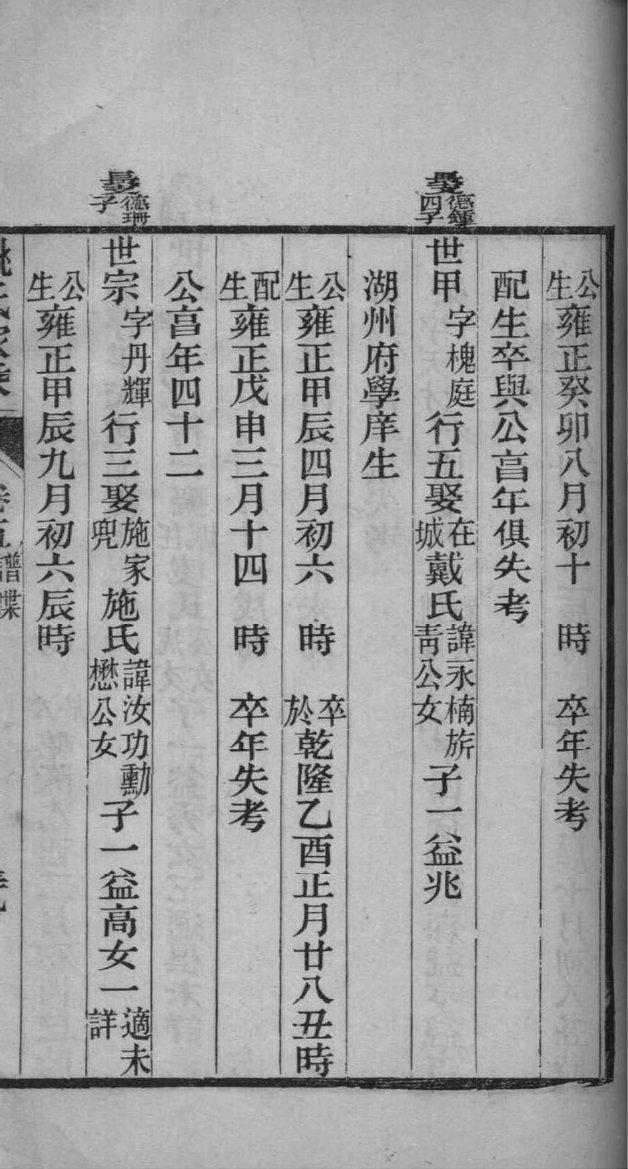 公生雍正癸卯八月初十 時 卒年失考
配生卒與公亯年俱失考
長支德鍾四子
世甲字槐庭行五娶在城戴氏諱永楠旂青公女子一益兆
湖州府學庠生
公生雍正甲辰四月初六 時 卒於乾隆乙酉正月廿八丑時
配生雍正戊申三月十四 時 卒年失考
公亯年四十二
德珊子
世宗字丹輝行三娶施家兜施氏諱汝功勳懋公女子一益高女一適未詳
公生雍正甲辰九月初六辰時
卷五 譜牒